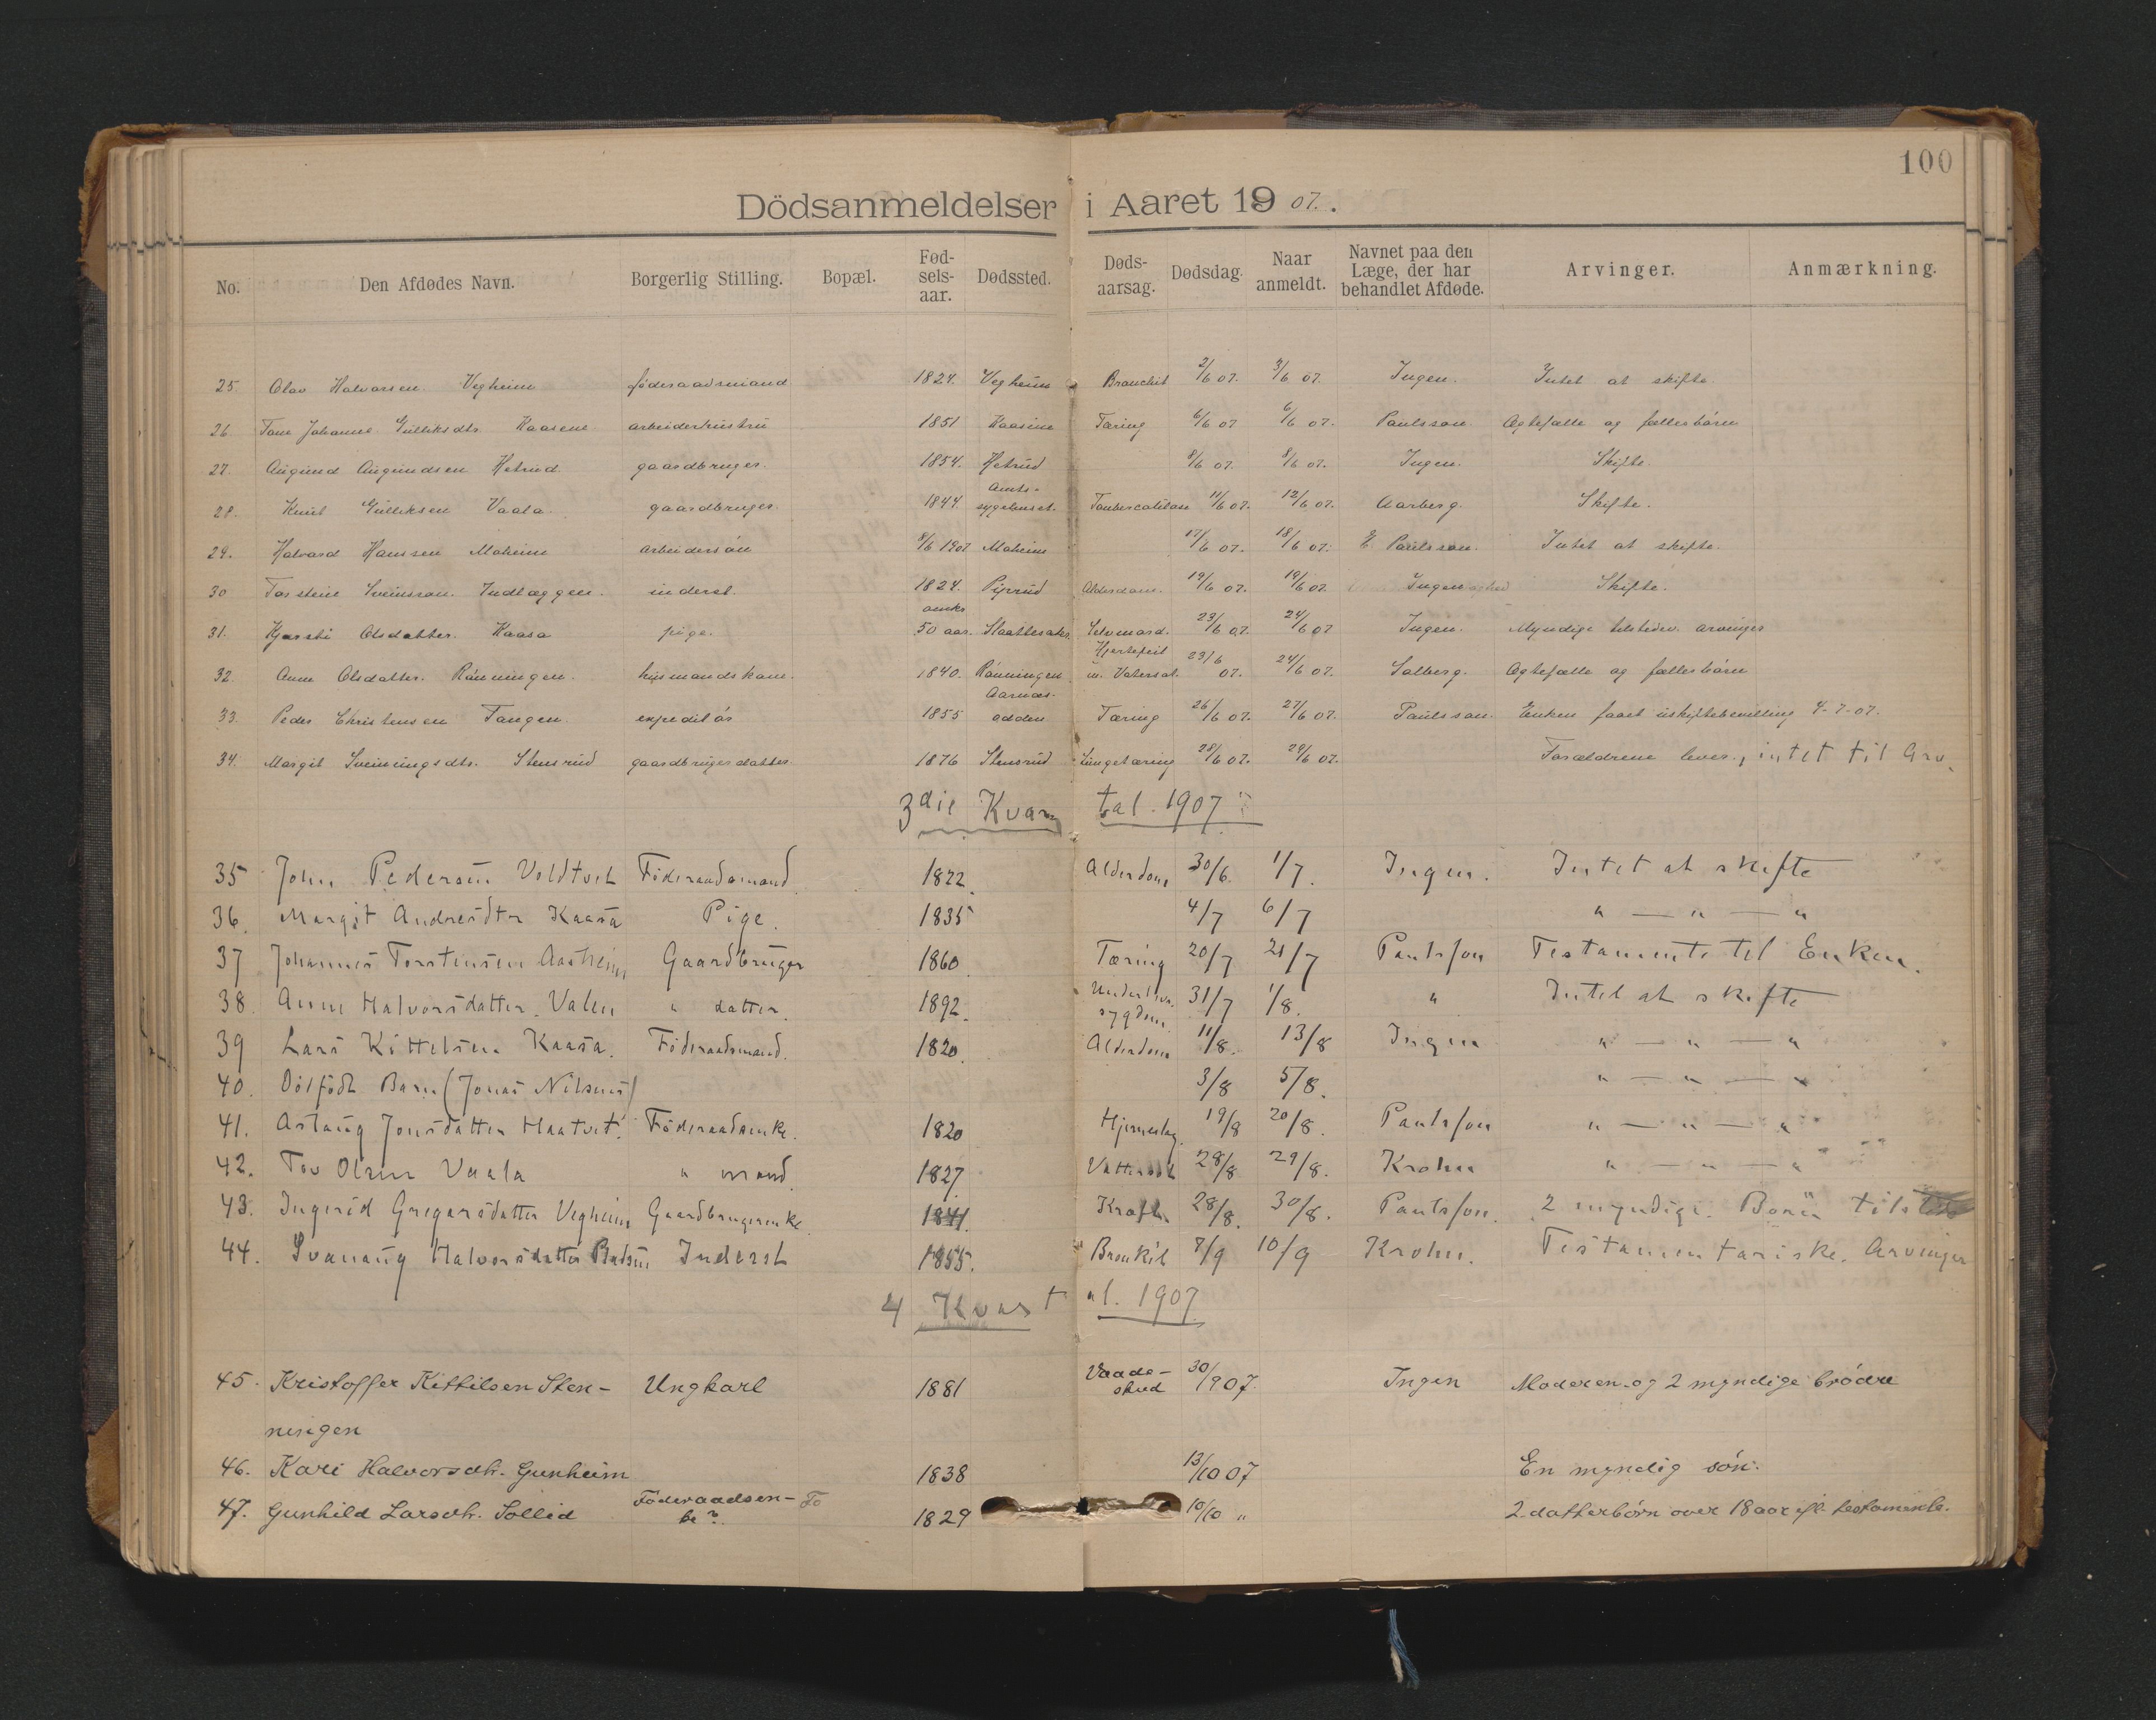 100
Dödsanmeldelser i Aaret 1907.
No. Den Afdødes Navn. Borgerlig Stilling. Bopæl. Fød-sels-aar. Dødssted. Døds-aarsag. Dødsdag. Naar anmeldt. Navnet paa den Læge, der har behandlet Afdøde. Arvinger. Anmærkning.
25. Olav Halvorsen Vegheim føderaadsmand 1824. Vegheim Bronchit 2/6 07. 3/6 07. Ingen. Intet at skifte
26. Tone Johanne Gulliksdtr. Kaasene arbeiderhustru 1851 Kaasene Tæring 6/6 07 6/6 07. Paulsson. Ægtefælle og fællesbørn
27. Augund Augundsen Hetrud gaardbruger. 1854. Hetrud 8/6 07. 8/6 07. Ingen. Skifte.
28. Knut Gulliksen Vaala gaardbruger. 1844. Amts-sygehuset. 11/6 07. 12/6 07. Aarberg. Skifte.
29. Halvard Hanssen Moheim arbeidersøn 8/6 1907 Moheim 17/6 07. 18/6 07. E. Paulsson. Intet at skifte.
30 Torstein Sveinsson. Indlæggen. inderst. 1824. Piprud Alderdom. 19/6 07. 19/6 07 Ingen Skifte.
31. Kjersti Olsdatter. Kaasa pige. omkr 50 aar. Slaattesaker Selvmord. 23/6 07. 24/6 07 Ingen. Myndige tilstedev. arvinger
32. Anne Olsdatter. Rønningen. husmandskone. 1840. Rønningen Hjertefeil m. Vatersot. 23/6 07. 24/6 07. Solberg. Ægtefælle og fællesbørn
33. Peder Christensen Tangen. expeditør 1855 Aarnes-odden Tæring 26/6 07. 27/6 07. Paulsson. Enken faaet uskiftebevilling 4-7-07.
34. Margit Sveinungsdtr. Stensrud gaardbrugerdatter. 1876 Stensrud Lungetæring 28/6 07. 29/6 07. Forældrene lever, intet til Arv.
3die Kvartal. 1907
35 John Pedersen Voldtvet Föderaadsmand. 1822. Alderdom 30/6. 1/7. Ingen. Intet at skifte
36. Margit Andresdtr Kaasa Pige. 1835 4/7 6/7 " — " — "
37 Johannes Torstensen Aasheim Gaardbruger 1860. Tæring 20/7 21/7 Paulsson Testamente til Enken.
38. Anne Halvorsdatter. Valen " datter. 1892. Underlivs.sygdom. 31/7 1/8. " Intet at skifte
39 Lars Kittelsen Kaasa. Föderaadsmand. 1820. Alderdom 11/8. 13/8 Ingen " — " — "
40. Dödfödt Barn (Jonas Nilsens) 3/8 5/8. " — " — "
41. Aslaug Jonsdatter Haatvet. Föderaadsenke. 1820 Hjerneslag. 19/8 20/8. Paulsson " — " — "
42. Tov Olsen Vaala " mand. 1827. Vattersot 28/8 29/8. Krohn " — " — "
43. Ingerid Gregarsdatter Vegheim Gaardbrugerenke 1841. Kræft. 28/8. 30/8. Paulsson. 2 myndige Børn tilstede
44. Svanaug Halvorsdatter Inderst 1855. Bronkit 7/9 10/9 Krohn. Testamentariske. Arvinger
4 Kvartal. 1907
45. Kristoffer Kittilsen Sten- Ungkarl 1881 Vaade-skud 30/9 07. Ingen Moderen og 2 myndige brödre
ningen
46. Kari Halvorsdtr. Gunheim 1838 13/10 07 En myndig sön.
47. Gunhild Larsdtr. Sollid Föderaadsen-ke? Fo 1829 10/10 " 2 datterbörn over 18 aar ifl. testamente.